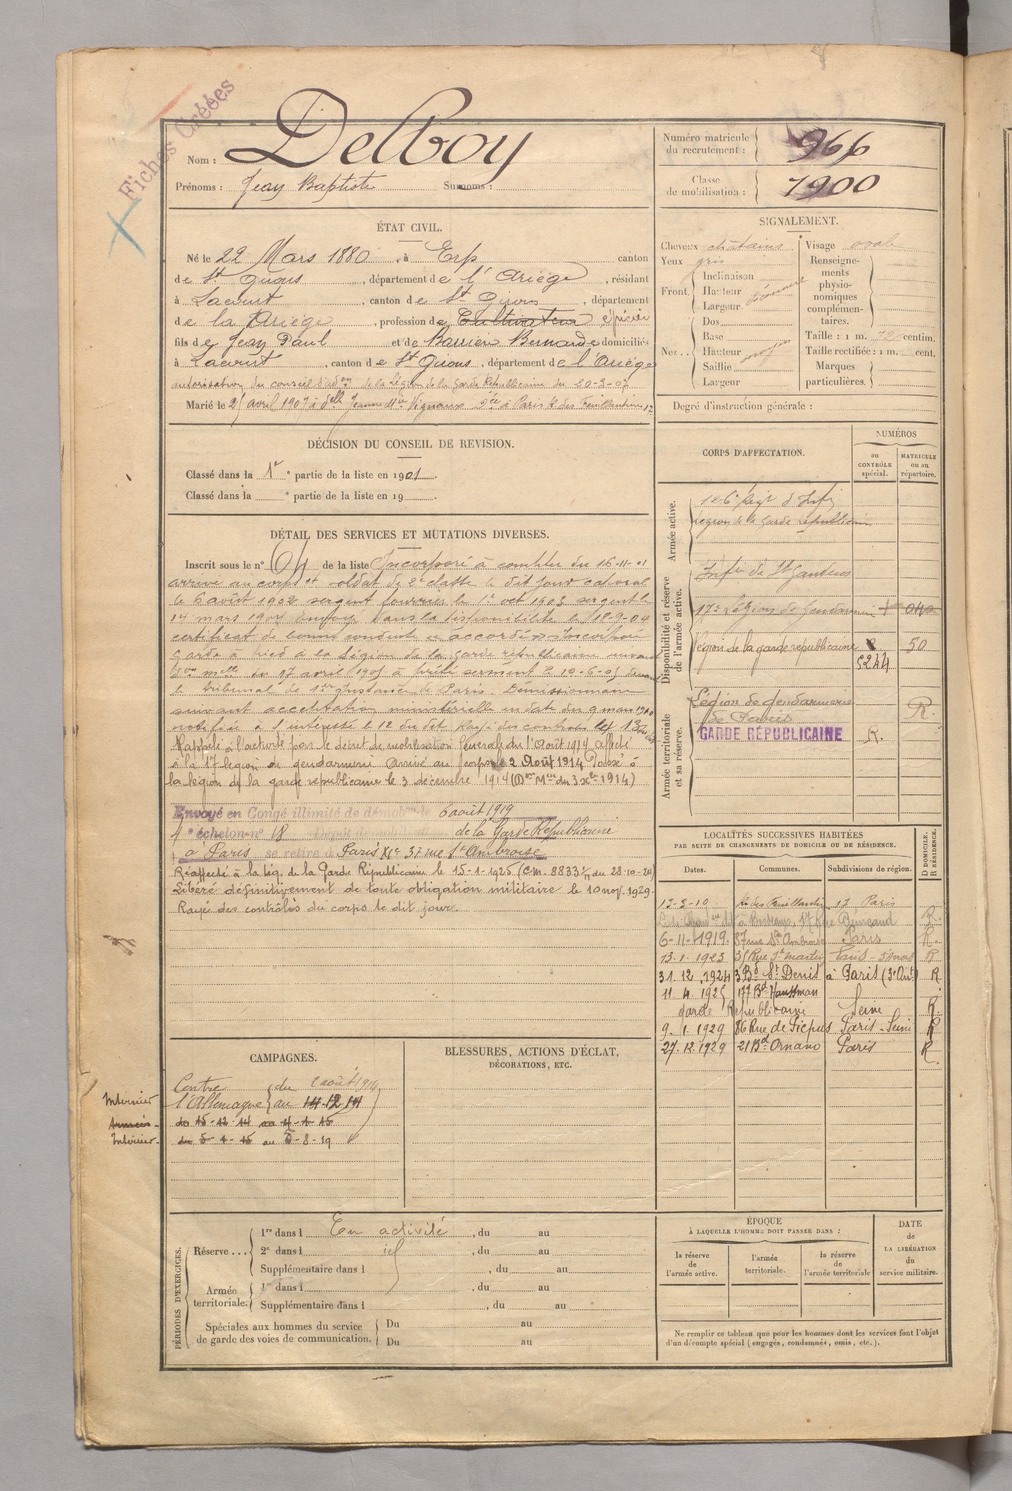 Fiches Créées
Nom : Delboy
Prénoms : Jean Baptiste Surnoms :
Numéro matricule du recrutement : 966
Classe de mobilisation : 1900
ÉTAT CIVIL.
Né le 22 Mars 1880, à Erp canton
de St Girons, département de l'Ariège, résidant
à Lacourt, canton de St Girons, département
de la Ariège, profession de Cultivateur épicier
fils de Jean Paul et de Barrien Bernarde domiciliés
à Lacourt, canton de St Girons, département de l'Ariège
autorisation du conseil d'adon de la Légion de la Garde Républicaine du 20-3-07
Marié le avril 1907 à delle Jeanne Mie Vignaux à Paris des Feuillantines
SIGNALEMENT.
Cheveux châtains
Yeux gris
Front Inclinaison
Hauteur
Largeur
Nez Dos
Base
Hauteur moyen
Saillie
Largeur
Visage oval
Renseignements physionomiques complémentaires.
Taille : 1 m. centim.
Taille rectifiée : 1 m. cent.
Marques particulières.
Degré d'instruction générale :
DÉCISION DU CONSEIL DE REVISION.
Classé dans la 1re partie de la liste en 1901.
Classé dans la e partie de la liste en 19
DÉTAIL DES SERVICES ET MUTATIONS DIVERSES.
Inscrit sous le n° 64 de la liste Incorporé à compter du 16-11-01
arrivé au corps et soldat de 2e classe le dit jour caporal
le 6 août 1902 sergent fourrier le 1er oct 1903 sergent le
14 mars 1904 envoyé dans la disponibilité le 18-9-04
certificat de bonne conduite accordé Incorporé
garde à pied à la Légion de la garde républicaine suivant
don melle du 17 avril 1905 a prêté serment le 10-6-05 devant
le tribunal de 1ère instance de Paris. Démissionnaire
suivant acceptation ministérielle en date du 9 mars 1910
notifiée à l'intéressé le 12 du dit. Rayé des contrôles le 13
Rappelé à l'activité par le décret de mobilisation générale du 1er Août 1914 affecté
à la 17e légion de gendarmerie arrivé au corps le 2 Août 1914 Passé à
la légion de la garde républicaine le 3 décembre 1914 (Don Mlle du 3 Xbre 1914)
Envoyé en Congé illimité de démobon le 6 août 1919
4e échelon n° 18 de la Garde Républicaine
à Paris se retire à Paris XIe 37 rue St Ambroise
Réaffecté à la lég. de la Garde Républicaine le 15-1-1925 (C.M. 8833 du 28-10-24)
Libéré définitivement de toute obligation militaire le 10 nov. 1929.
Rayé des contrôles du corps le dit jour.
CORPS D'AFFECTATION.
NUMÉROS
au CONTRÔLE spécial.
MATRICULE ou au répertoire.
Armée active.
126e Régt d'Infie
Légion de la garde républicaine
Disponibilité et réserve de l'armée active.
Infie de St Gaudens
17e Légion de Gendarmerie
Légion de la garde républicaine 50
5244
Armée territoriale et sa réserve.
Légion de gendarmerie de Paris R.
GARDE RÉPUBLICAINE R.
LOCALITÉS SUCCESSIVES HABITÉES
PAR SUITE DE CHANGEMENTS DE DOMICILE OU DE RÉSIDENCE.
Dates. Communes. Subdivisions de région. D DOMICILE. R RÉSIDENCE.
12-3-10 des Feuillantines 17 Paris
R.
6-11-1919. 37 rue St Ambroise Paris R.
13.1.1923 Rue St Martin Paris R
31.12.1924 3 Bd St Denis à Paris R
11.4.1925 177 Bd Haussman
Garde Républicaine Seine R.
9.1.1929 86 Rue de Picpus Paris - Seine R
27.12.1929 21 Bd Ornano Paris R.
CAMPAGNES.
Contre l'Allemagne du 2 août 1914
au 14-12 14
Intérieur
Armées
Intérieur
du 15-12-14 au 4-1-15
du 5-1-15 au 5-8-19
BLESSURES, ACTIONS D'ÉCLAT, DÉCORATIONS, ETC.
PÉRIODES D'EXERCICES.
Réserve... 1re dans l En activité, du au
2e dans l id, du au
Supplémentaire dans l, du au
Armée territoriale. 1re dans l, du au
Supplémentaire dans l, du au
Spéciales aux hommes du service de garde des voies de communication. Du au
Du au
ÉPOQUE
À LAQUELLE L'HOMME DOIT PASSER DANS :
la réserve de l'armée active.
l'armée territoriale.
la réserve de l'armée territoriale
DATE DE LA LIBÉRATION du service militaire.
Ne remplir ce tableau que pour les hommes dont les services font l'objet
d'un décompte spécial (engagés, condamnés, omis, etc.).